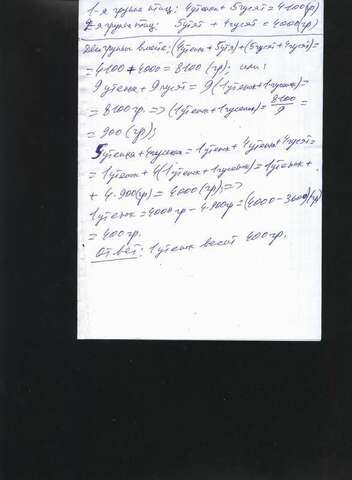 1-я группа птиц: 4 утёнка + 5 гусят = 4100 (гр)
2-я группа птиц: 5 утят + 4 гусят = 4000 (гр)
Две группы вместе: (4 утёнка + 5 утят) + (5 гусят + 4 гусят) =
= 4100 + 4000 = 8100 (гр); или:
9 утёнка + 9 гусят = 9 (1 утёнок + 1 гусёнок) =
= 8100 гр. => (1 утёнок + 1 гусёнок) = 8100/9 =
= 900 (гр);
5 утёнка + 4 гусёнка = 1 утёнк + 4 утёнка + 4 гусят =
= 1 утёнк + 4 (1 утёнк + 1 гусёнок) = 1 утёнк +
+ 4 . 900 (гр) = 4000 (гр) =>
1 утёнок = 4000 гр - 4 . 900 гр = (4000 - 3600) (гр)
= 400 гр.
Ответ: 1 утёнок весит 400 гр.